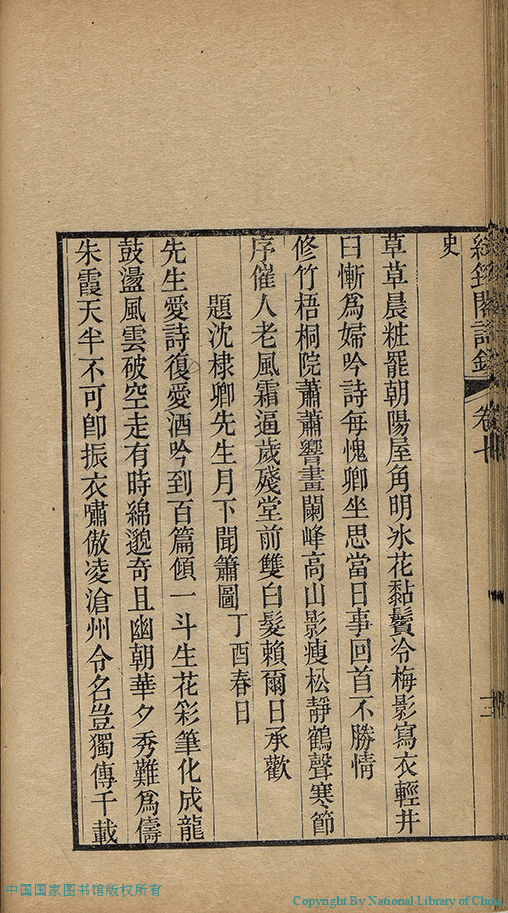 史
草草晨粧罷朝陽屋角明氷花黏鬢冷梅影寫衣輕井
臼慚爲婦吟詩每愧卿坐思當日事回首不勝情
修竹梧桐院蕭蕭響畫闌峰高山影瘦松靜鶴聲寒節
序催人老風霜逼歲殘堂前雙白髮賴爾日承歡
題沈棣卿先生月下聞簫圖丁酉春日
先生愛詩復愛酒吟到百篇傾一斗生花彩筆化成龍
鼓盪風雲破空走有時綿邈奇且幽朝華夕秀難爲儔
朱霞天半不可卽振衣嘯傲凌滄州令名豈獨傳千載
中国国家图书馆版权所有
Copyright By National Library of China